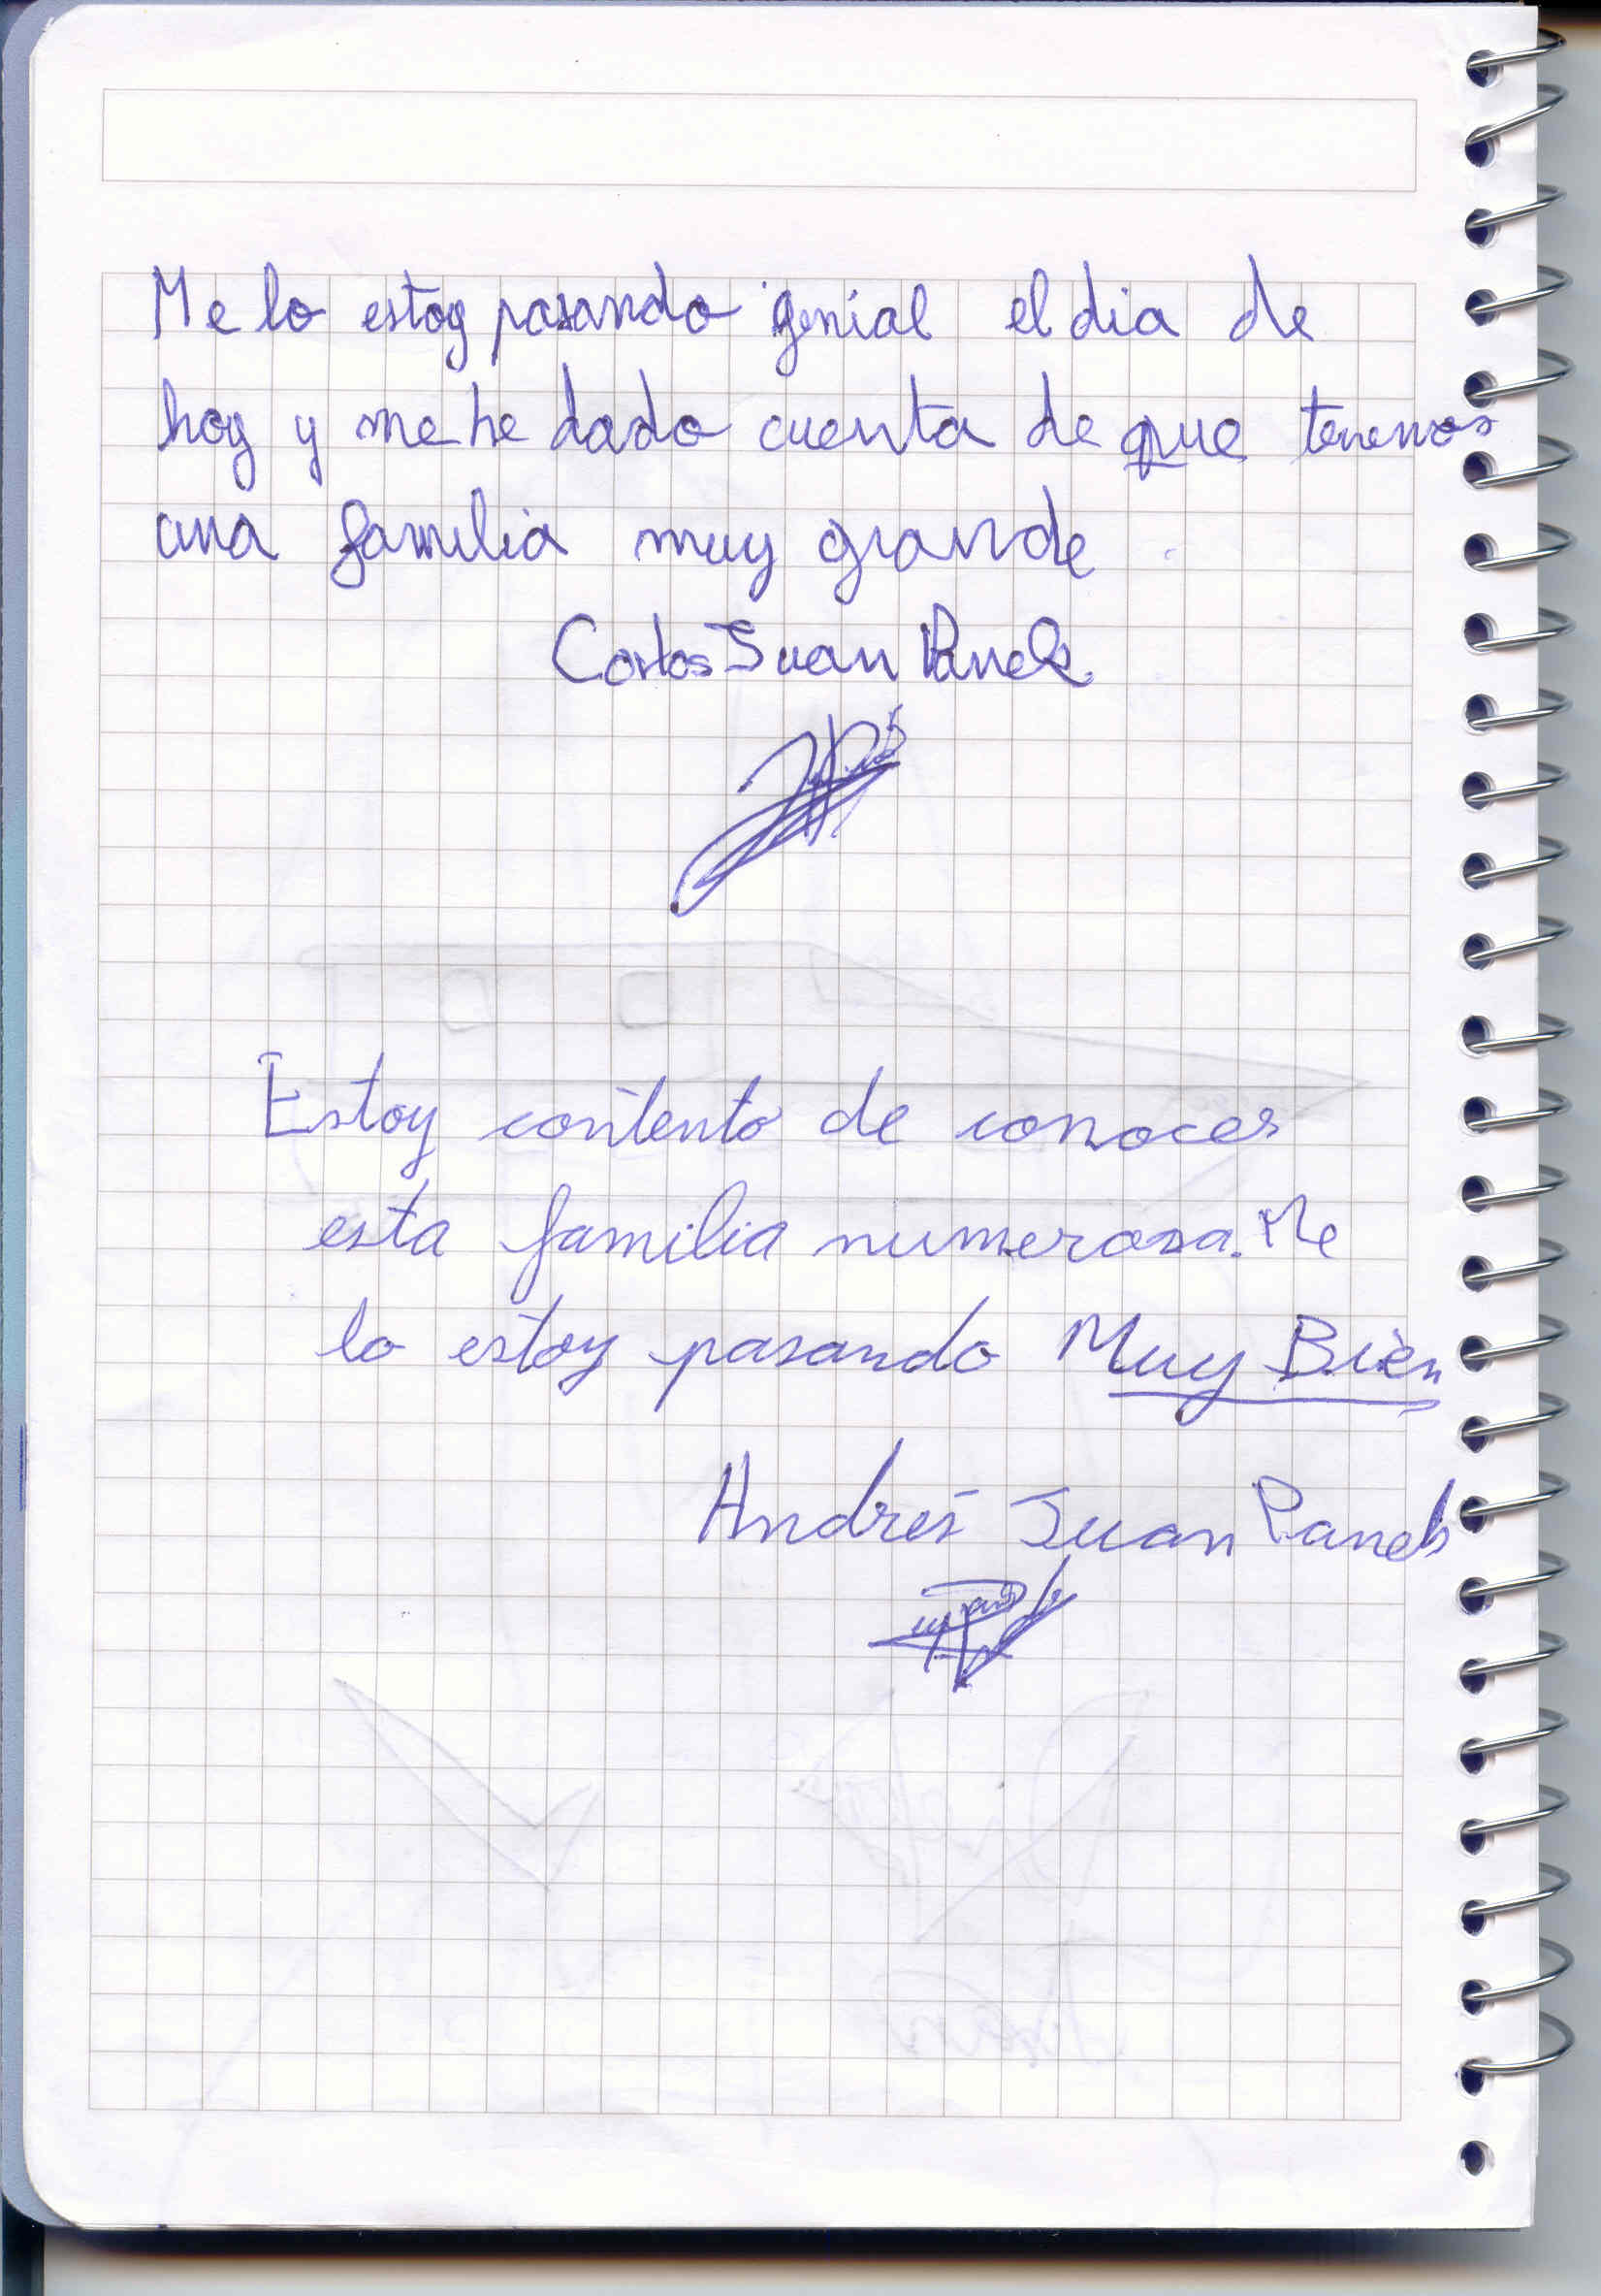 Me lo estoy pasando genial el dia de
hoy y me he dado cuenta de que tenemos
una familia muy grande
Carlos Juan Panels
Estoy contento de conocer
esta familia numerosa. Me
lo estoy pasando Muy Bién
Andrés Juan Panels